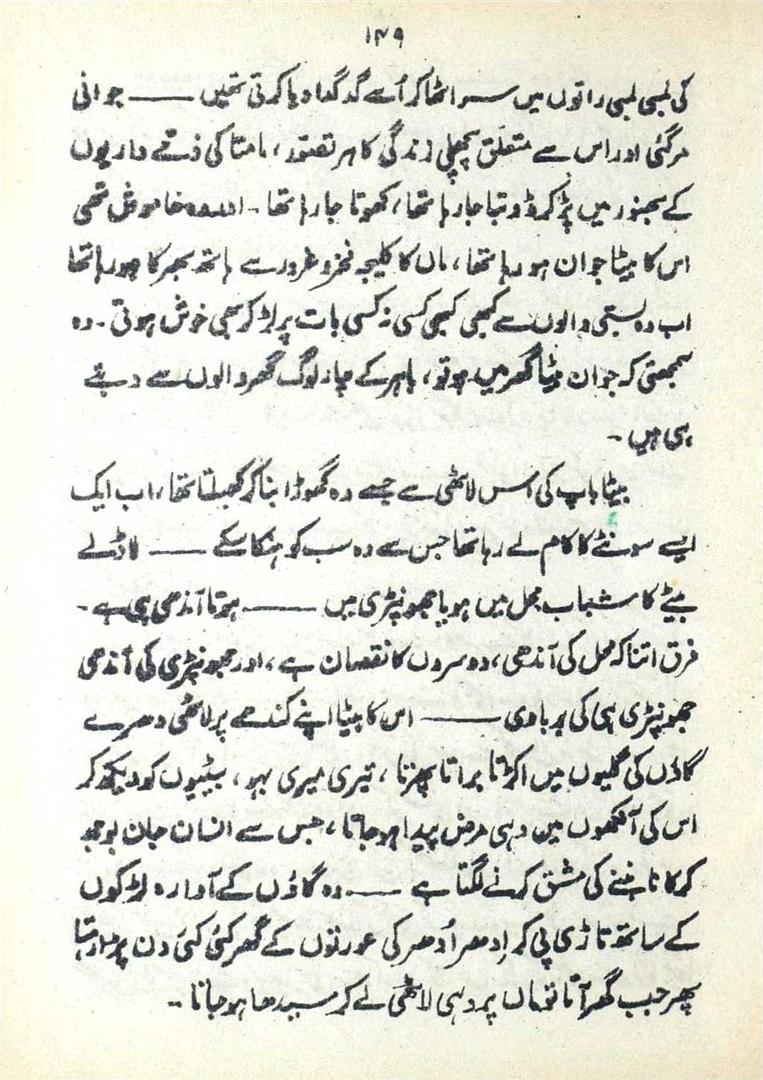 ۱۴۹
کی لمبی لمبی راتوں میں سر اٹھا کر اُسے گدگدا دیا کرتی تھیں ــــ جوانی
مرگئی اور اس سے متعلق پچھلی زندگی کا ہر تصور، مامتا کی ذمے داریوں
کے بھنور میں پڑ کر ڈوبتا جا رہا تھا، کھوتا جا رہا تھا ۔ اور وہ خاموش تھی
اس کا بیٹا جوان ہو رہا تھا، ماں کا کلیجہ فخر و غرور سے ہاتھ بھر کا ہو رہا تھا
اب وہ بستی والوں سے کبھی کبھی کسی نہ کسی بات پر لڑ کر بھی خوش ہوتی ۔ وہ
سمجھتی کہ جوان بیٹا گھر میں ہو تو، باہر کے چار لوگ گھر والوں سے دبتے
ہی ہیں ۔
بیٹا باپ کی اس لاٹھی سے جسے وہ گھوڑا بنا کر کھیلتا تھا، اب ایک
ایسے سونٹے کا کام لے رہا تھا جس سے وہ سب کو ہنکا سکے ــــ لاڈلے
بیٹے کا شباب محل میں ہو یا جھونپڑی میں ــــ ہوتا آندھی ہی ہے ۔
فرق اتنا کہ محل کی آندھی، دوسروں کا نقصان ہے، اور جھونپڑی کی آندھی
جھونپڑی ہی کی بربادی ــــ اس کا بیٹا اپنے کندھے پر لاٹھی دھرے
گاؤں کی گلیوں میں اکڑتا براتا پھرتا، تیری میری بہو، بیٹیوں کو دیکھ کر
اس کی آنکھوں میں وہی مرض پیدا ہو جاتا، جس سے انسان جان بوجھ
کر کانا بننے کی مشق کرنے لگتا ہے ــــ وہ گاؤں کے آوارہ لڑکوں
کے ساتھ تاڑی پی کر اِدھر اُدھر کی عورتوں کے گھر کئی کئی دن پڑا رہتا
پھر جب گھر آتا تو ماں پر وہی لاٹھی لے کر سیدھا ہو جاتا ۔۔